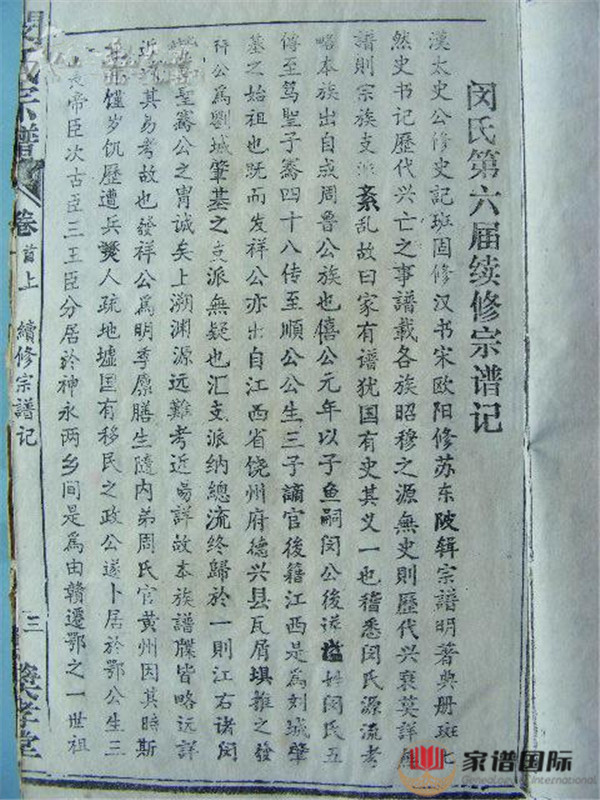 闵氏第六届续修宗谱记
漢太史公修史記班固修汉书宋欧阳修苏东陂辑宗譜明著典册班七
然史书记歷代兴亡之事譜載各族昭穆之源無史則歷代兴衰莫詳無
譜則宗族支派紊乱故曰家有谱犹国有史其义一也稽悉闵氏源流考
略本族出自或周鲁公族也僖公元年以子鱼嗣闵公後谥姓闵氏五
傳至笃聖子騫四十八传至順公公生三子謫官後籍江西是為刘城肇
基之始祖也既而发祥公亦出自江西省饶州府德兴县瓦屑埧推之發
祥公爲劉城肇基之支派無疑也汇支派纳總流终歸於一則江右诸闵
聖騫公之胄誠矣上溯渊源远難考近易詳故本族譜牒皆略远詳
近其易考故也發祥公爲明季廪膳生隨内弟周氏官黄州因其時斯
馑岁饥歷遭兵燹人疏地墟国有移民之政公遂卜居於鄂公生三
帝臣次古臣三王臣分居於神永两乡间是爲由贛遷鄂之一世祖
氏宗譜 卷首上 續修宗譜记 三 孝堂
家谱国际
Genealogical International